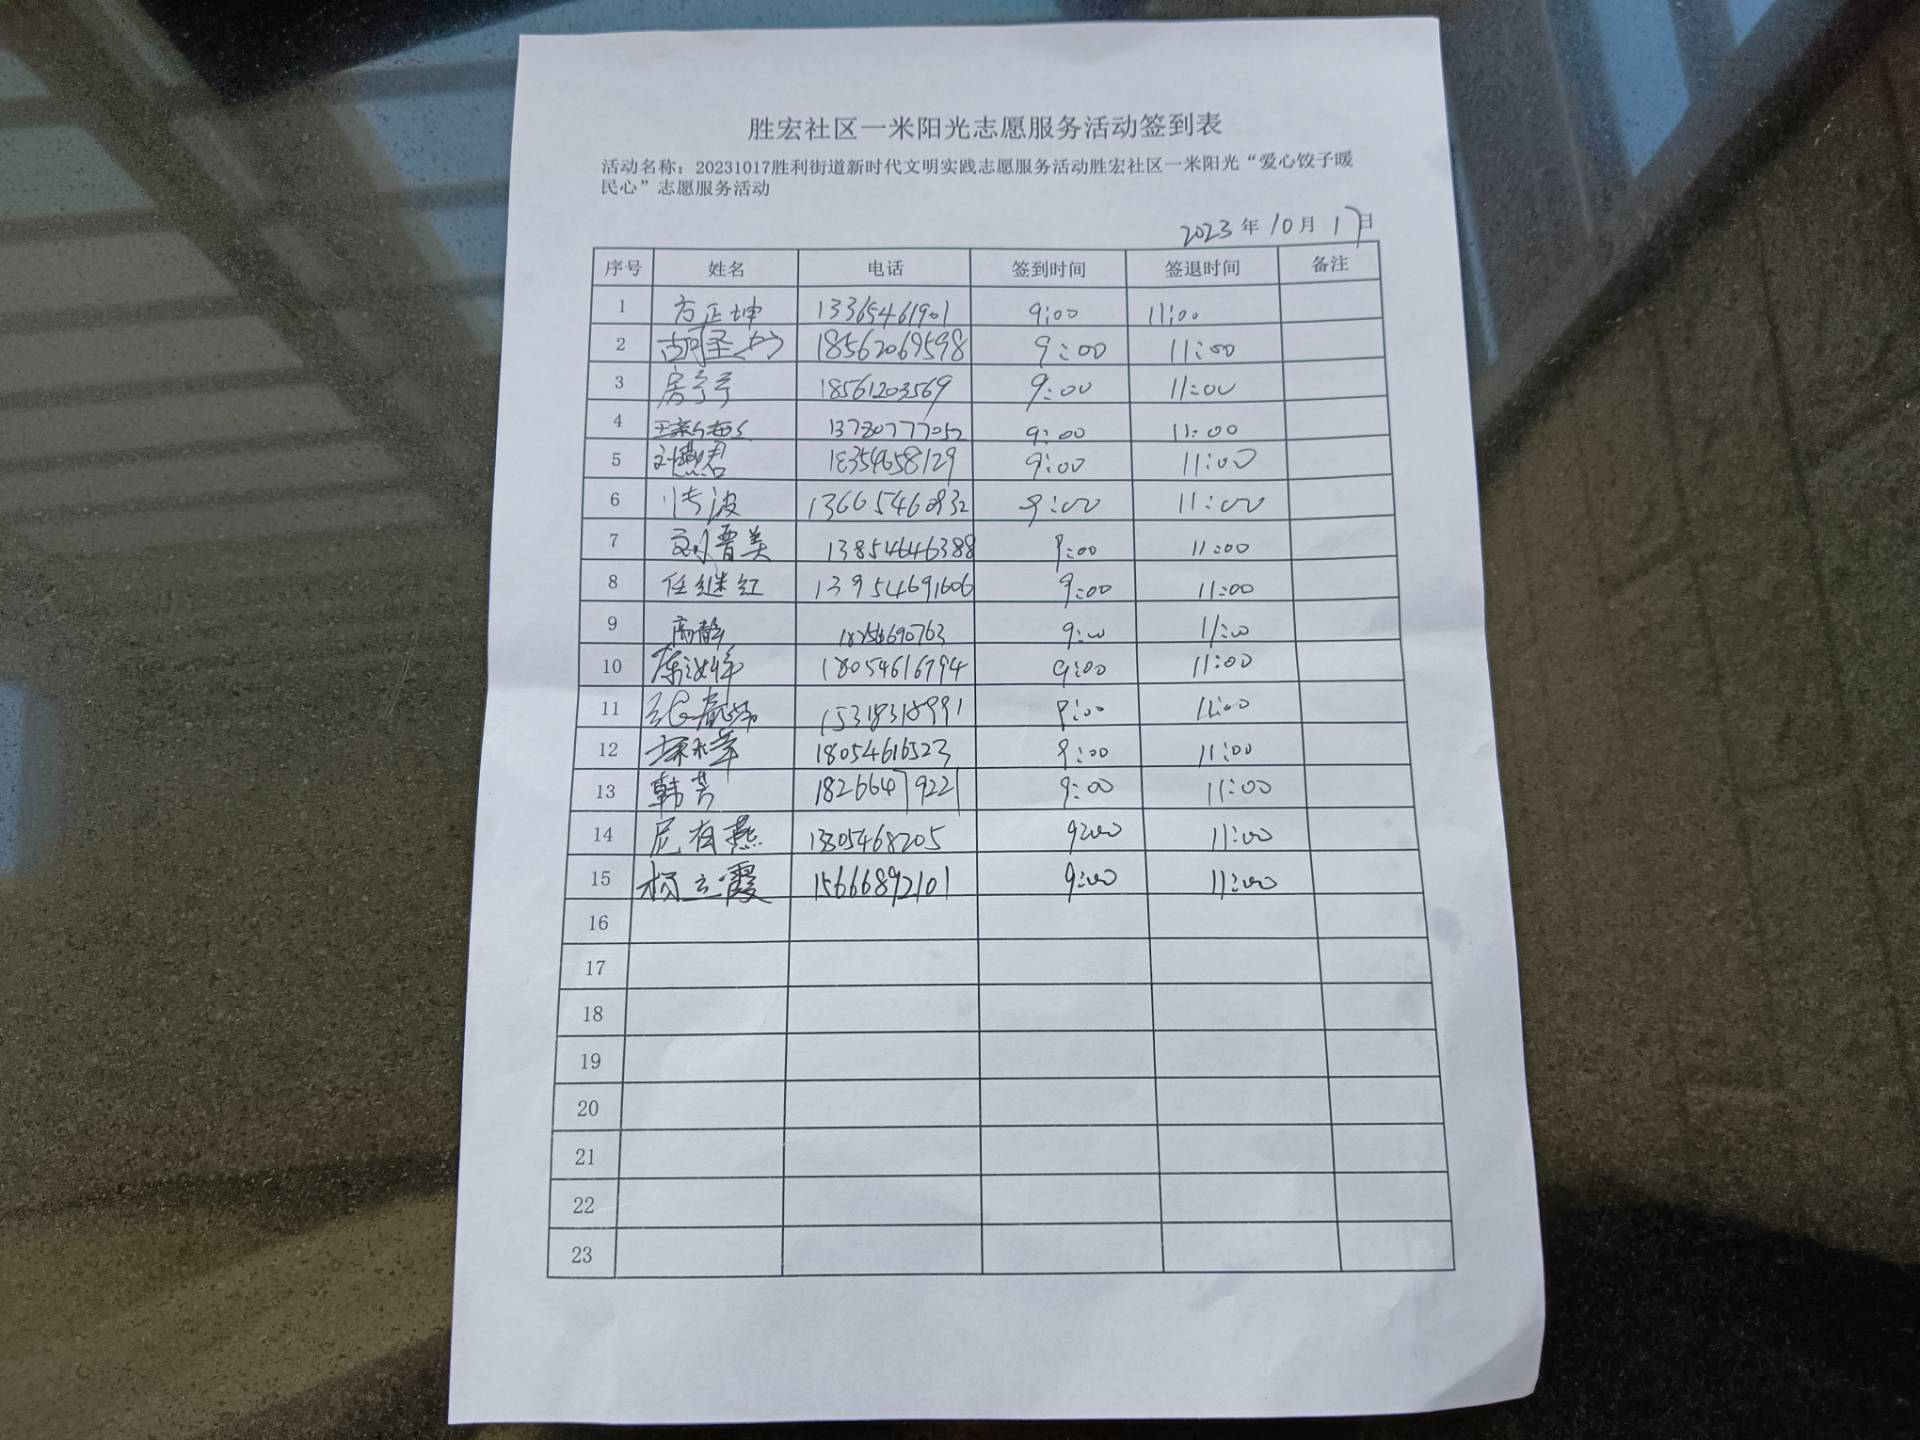 胜宏社区一米阳光志愿服务活动签到表
活动名称：20231017胜利街道新时代文明实践志愿服务活动胜宏社区一米阳光“爱心饺子暖
民心”志愿服务活动
2023 年 10 月 17 日
序号 姓名 电话 签到时间 签退时间 备注
1 方正坤 13365461901 9:00 11:00
2 18562069598 9:00 11:00
3 房 18561203569 9:00 11:00
4 13780777052 9:00 11:00
5 刘燕君 18354658129 9:00 11:00
6 波 9:00 11:00
7 刘晋美 13854646388 9:00 11:00
8 任继红 13954691606 9:00 11:00
9 高静 9:00 11:00
10 18054616794 9:00 11:00
11 15318318991 9:00 11:00
12 18054616523 9:00 11:00
13 韩芳 18266479221 9:00 11:00
14 尼有燕 13805468205 9:00 11:00
15 杨立霞 15666892101 9:00 11:00
16
17
18
19
20
21
22
23